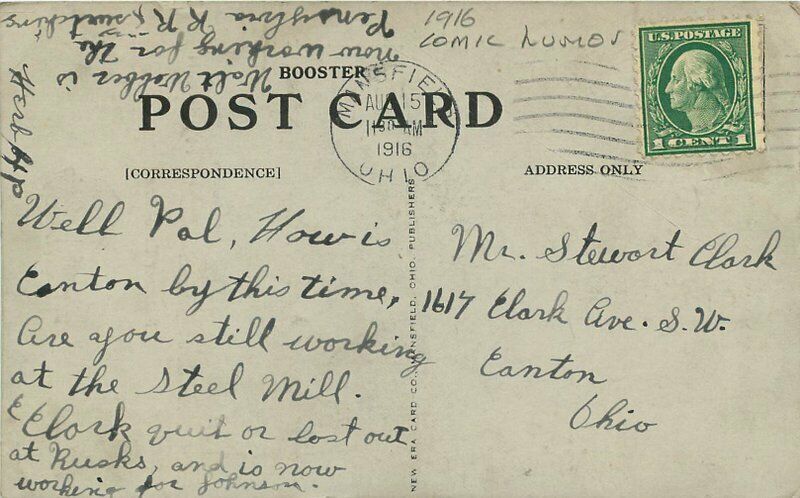 1916
COMIC HUMOR
U.S. POSTAGE
1 CENT 1
BOOSTER
POST CARD
MANSFIELD
AUG 15
1130 AM
1916
OHIO
[CORRESPONDENCE]
ADDRESS ONLY
Well Pal, How is
Canton by this time,
Are you still working
at the Steel Mill.
Clark quit or lost out
at Rusks, and is now
working for Johnson.
Walt Webber is
now working for the
Pensylvia R R switching
Herb
NEW ERA CARD CO., MANSFIELD, OHIO. PUBLISHERS
Mr. Stewart Clark
1617 Clark Ave. S.W.
Canton
Ohio